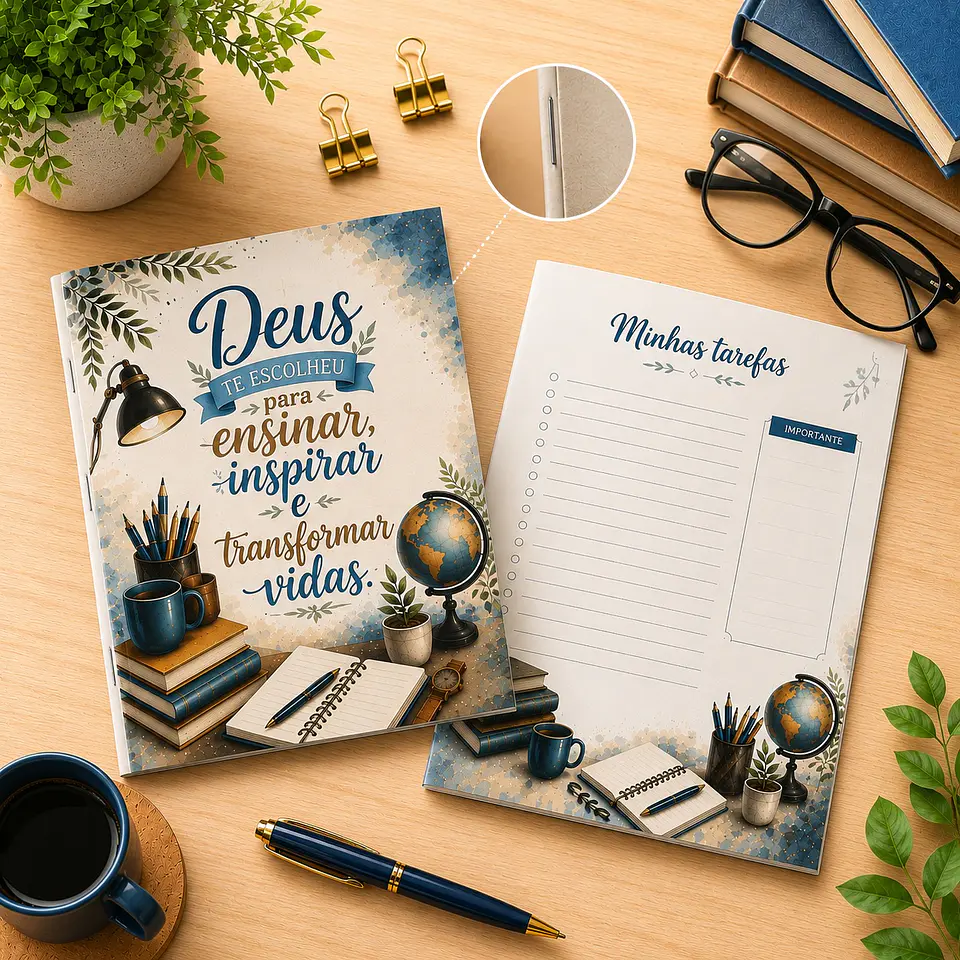 Deus
TE ESCOLHEU
para
ensinar,
inspirar
e
transformar
vidas.
Minhas tarefas
IMPORTANTE